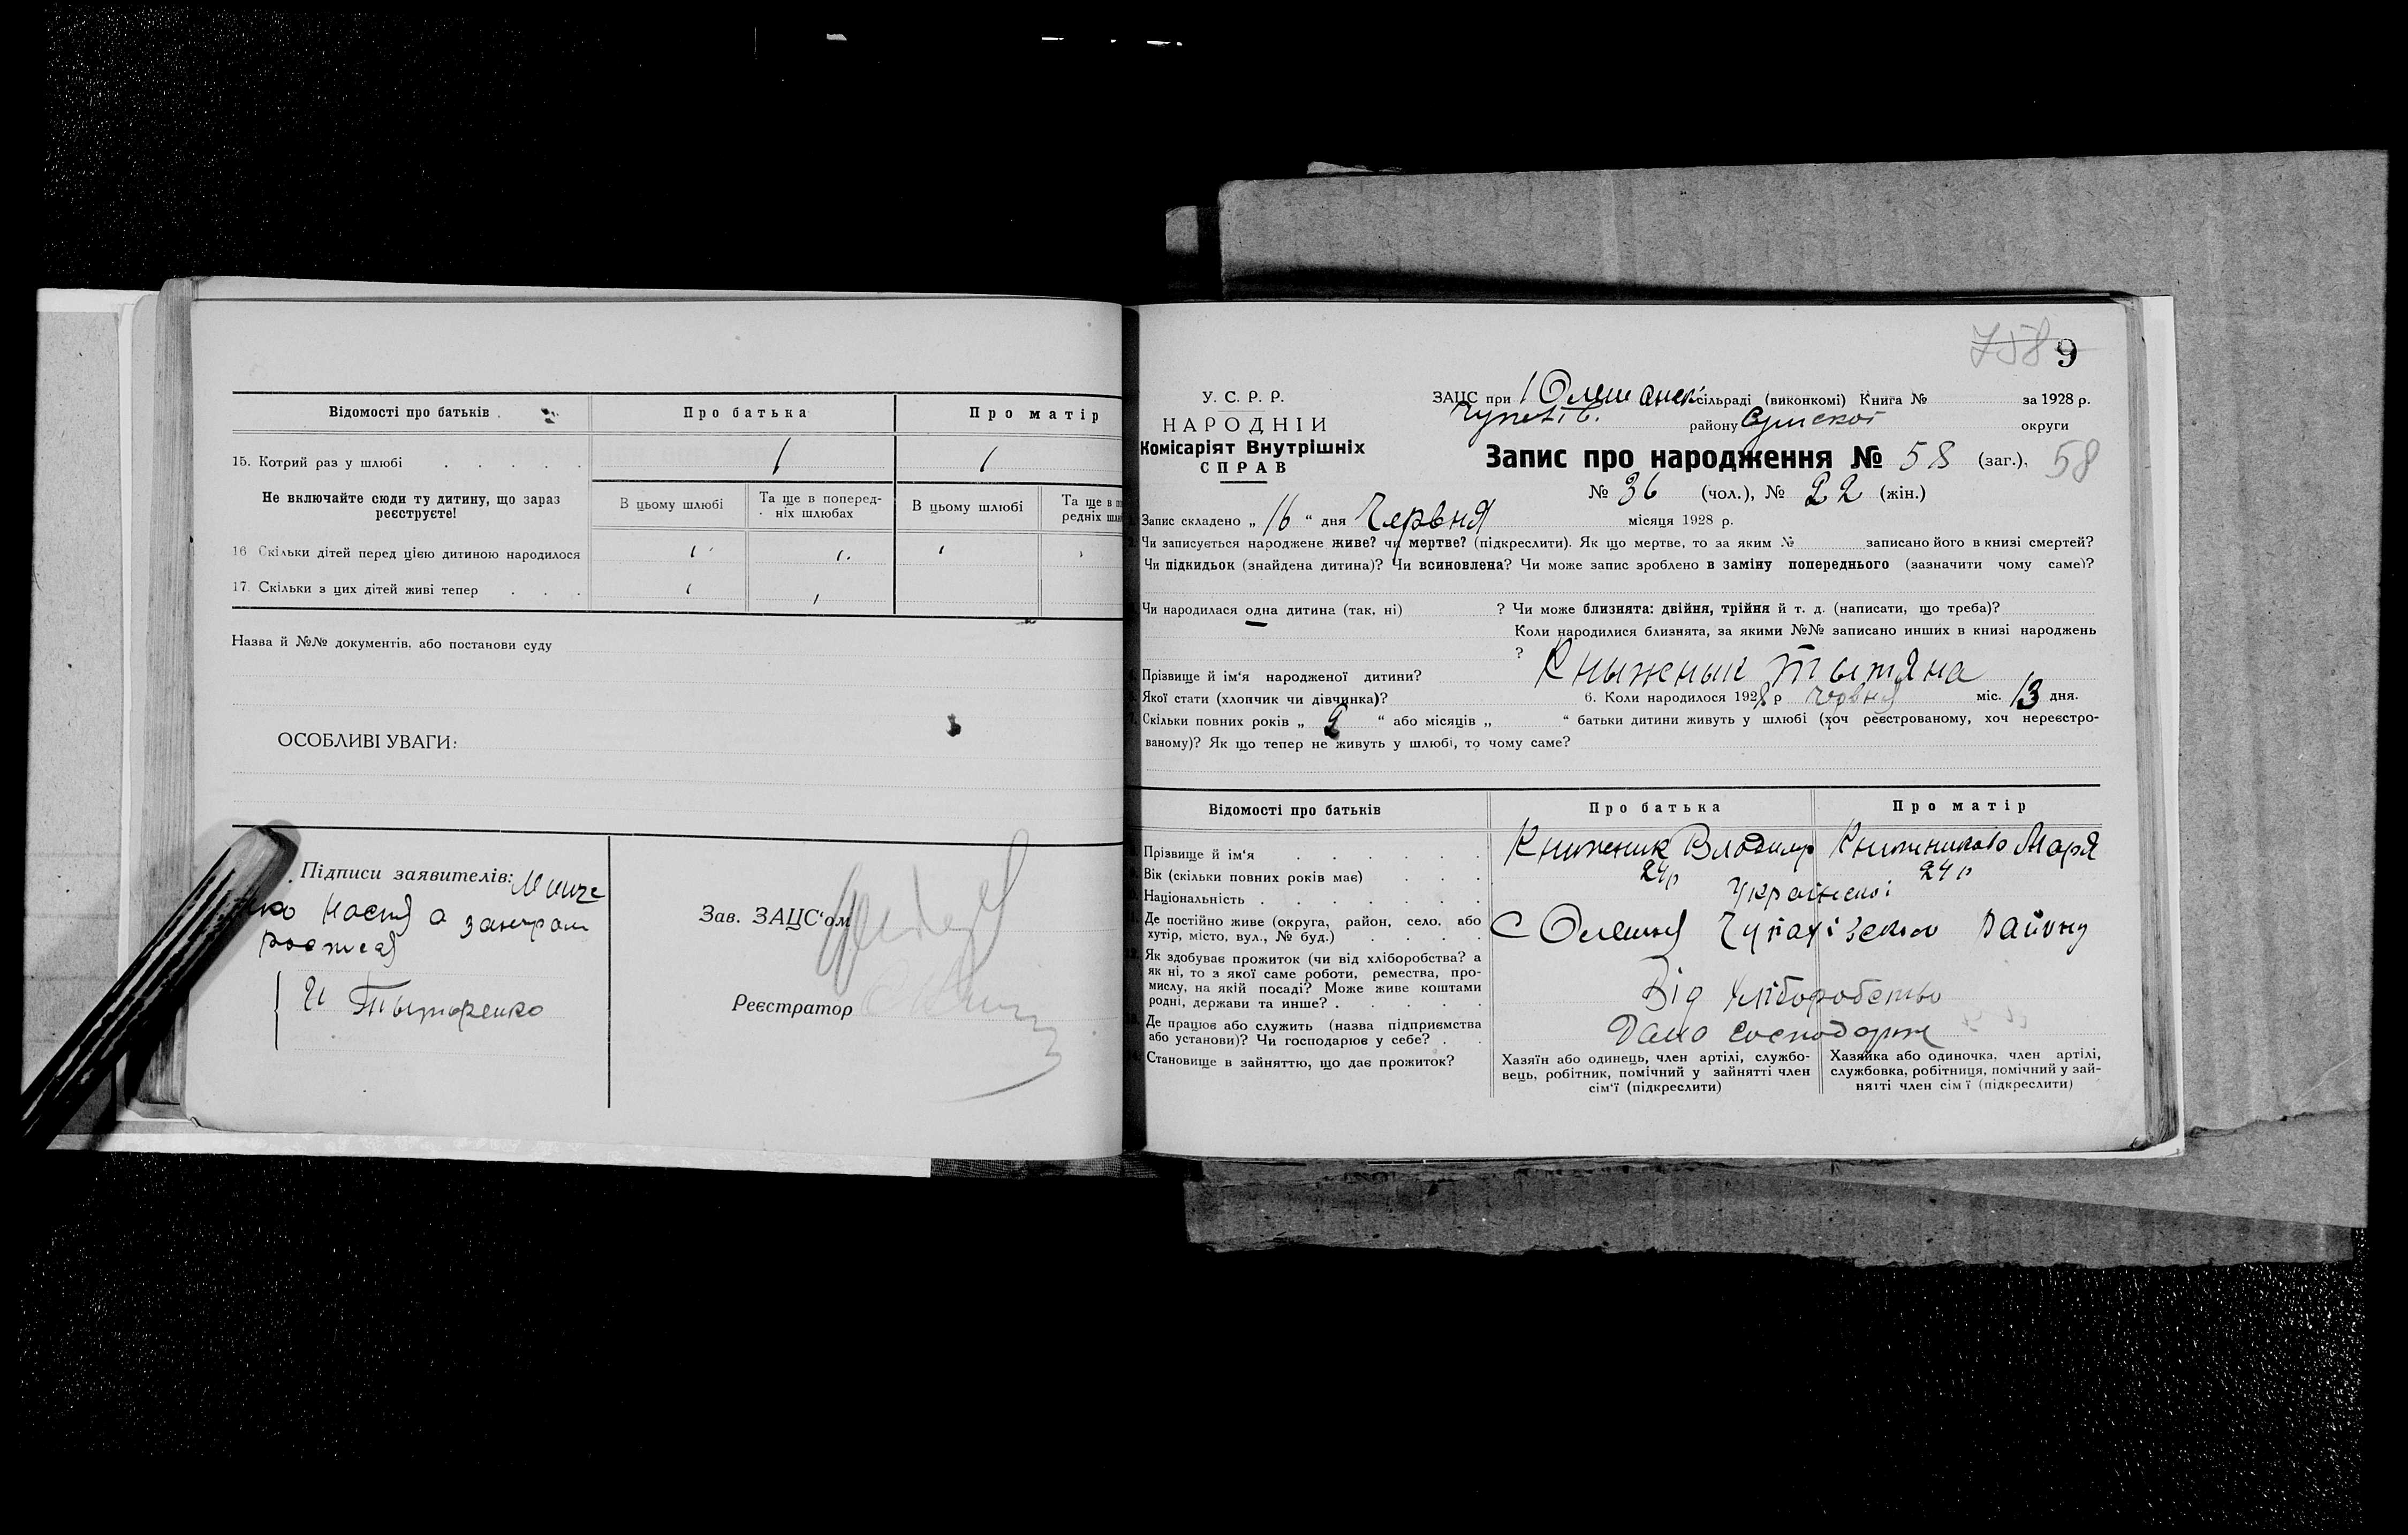 Відомості про батьків
Про батька
Про матір
15. Котрий раз у шлюбі
1
1
Не включайте сюди ту дитину, що зараз
реєструєте!
В цьому шлюбі
Та ще в поперед-
ніх шлюбах
В цьому шлюбі
Та ще в по
редніх шлю
16 Скільки дітей перед цією дитиною народилося
17. Скільки з цих дітей живі тепер
Назва й №№ документів, або постанови суду
ОСОБЛИВІ УВАГИ:
Підписи заявителів:
Зав. ЗАЦС'ом
Реєстратор
758 9
У. С. Р. Р.
НАРОДНІЙ
Комісаріят Внутрішніх
СПРАВ
ЗАЦС при Олешанск сільраді (виконкомі) Книга № за 1928 р.
району Сумскої округи
Запис про народження № 58 (заг.), 58
№ 36 (чол.), № 22 (жін.)
Запис складено „ 16 “ дня Червня місяця 1928 р.
Чи записується народжене живе? чи мертве? (підкреслити). Як що мертве, то за яким № записано його в книзі смертей?
Чи підкидьок (знайдена дитина)? Чи всиновлена? Чи може запис зроблено в заміну попереднього (зазначити чому саме)?
Чи народилася одна дитина (так, ні) ? Чи може близнята: двійня, трійня й т. д. (написати, що треба)?
Коли народилися близнята, за якими №№ записано инших в книзі народжень
?
Прізвище й ім'я народженої дитини? Кныжнык Тытяна
Якої стати (хлопчик чи дівчинка)? 6. Коли народилося 1928 р червня міс. 13 дня.
Скільки повних років „ 2 “ або місяців „ “ батьки дитини живуть у шлюбі (хоч реєстрованому, хоч нереєстро-
ваному)? Як що тепер не живуть у шлюбі, то чому саме?
Відомості про батьків
Про батька
Про матір
Прізвище й ім'я
Книжник Владимр
Книжникова Маря
Вік (скільки повних років має)
24 р
24 р
Національність
Украінскоі
Де постійно живе (округа, район, село, або
хутір, місто, вул., № буд.)
С Олешня Чупахівсько Району
Як здобуває прожиток (чи від хліборобства? а
як ні, то з якої саме роботи, ремества, про-
мислу, на якій посаді? Може живе коштами
родні, держави та инше?
Від Хліборобство
Де працює або служить (назва підприємства
або установи)? Чи господарює у себе?
Становище в зайняттю, що дає прожиток?
Хазяїн або одинець, член артілі, службо-
вець, робітник, помічний у зайнятті член
сім'ї (підкреслити)
Хазяйка або одиночка, член артілі,
службовка, робітниця, помічний у зай-
нятті член сім'ї (підкреслити)